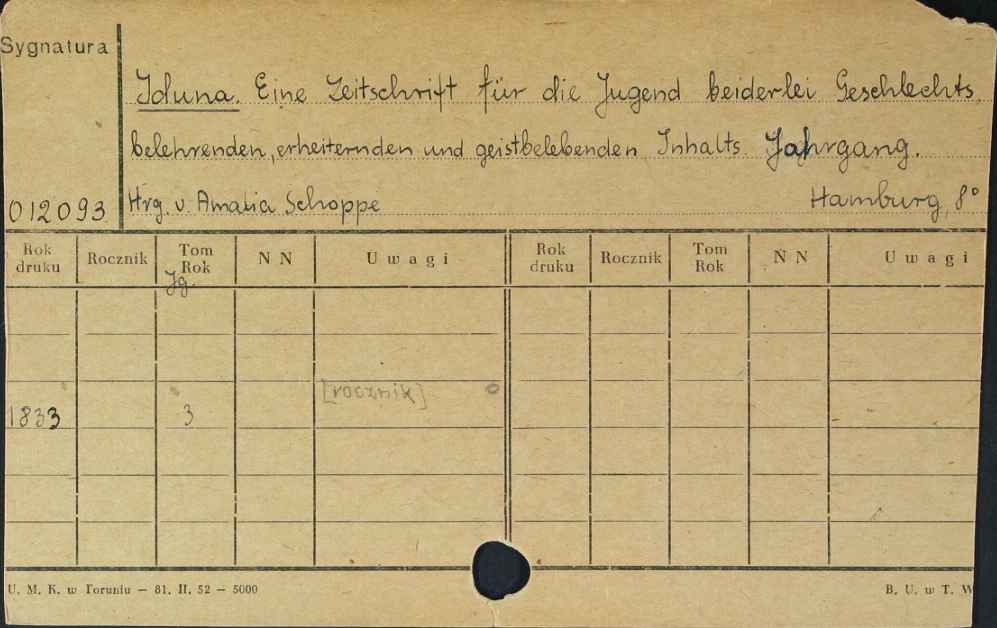 Sygnatura
Iduna. Eine Zeitschrift für die Jugend beiderlei Geschlechts,
belehrenden, erheiternden und geistbelebenden Inhalts. Jahrgang.
012093 Hrg. v. Amalia Schoppe Hamburg, 8°
Rok druku Rocznik Tom Rok N N Uwagi Rok druku Rocznik Tom Rok N N Uwagi
Jg.
[rocznik]
1833 3
U. M. K. w Toruniu — 81. II. 52 — 5000 B. U. w T. W